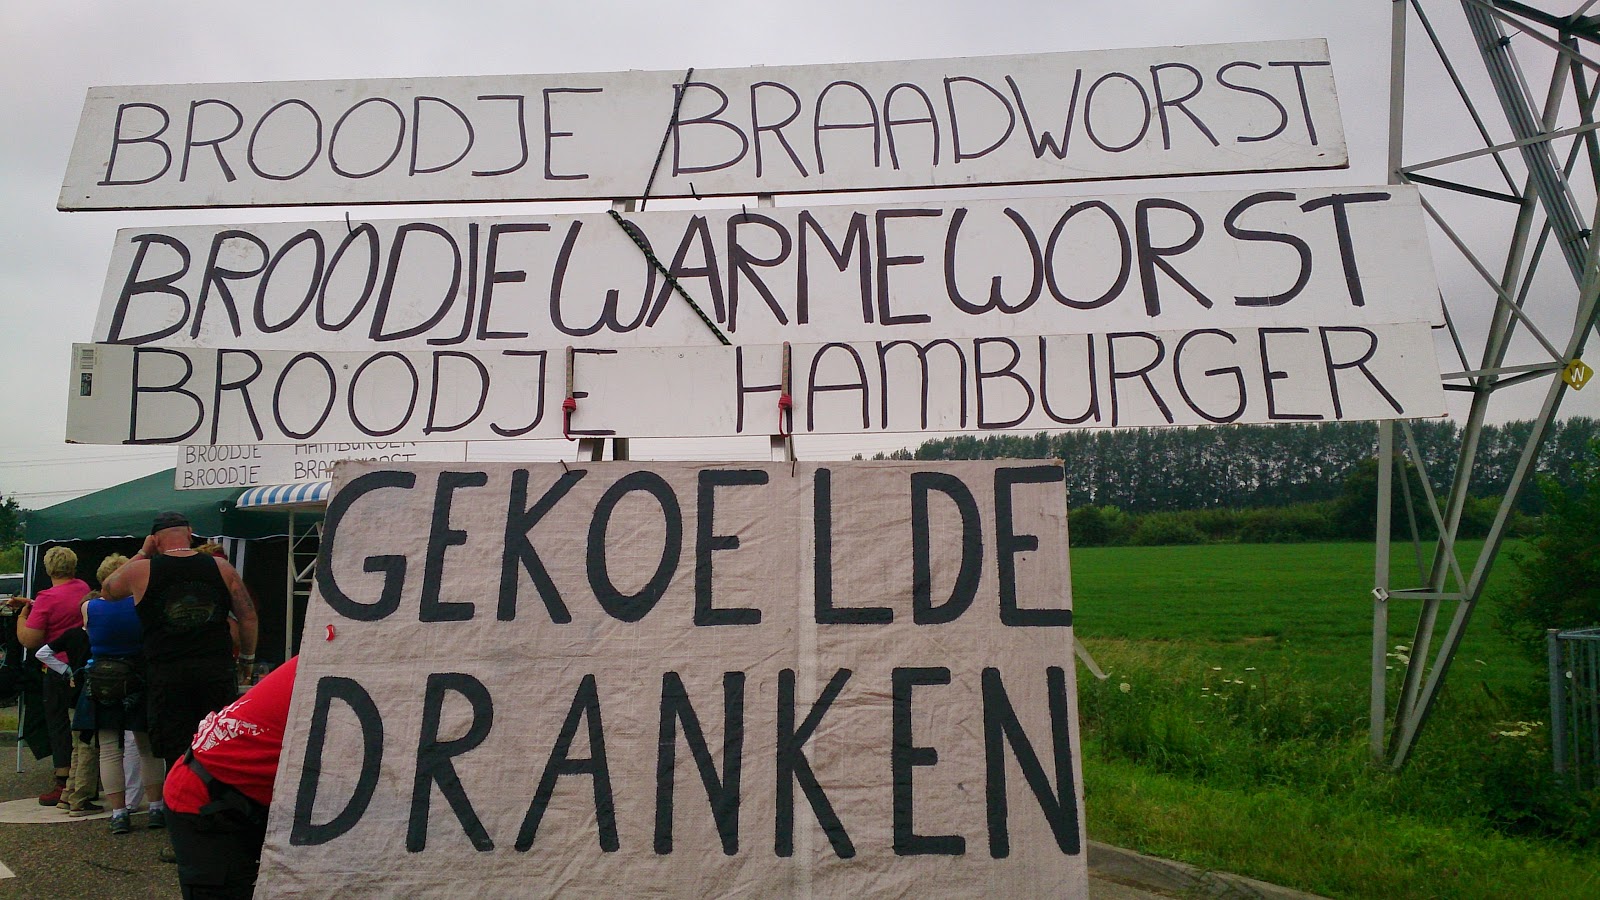 BROODJE BRAADWORST
BROODJE WARME WORST
BROODJE HAMBURGER
BROODJE HAMBURGER
BROODJE BRAADWORST
GEKOELDE
DRANKEN
W